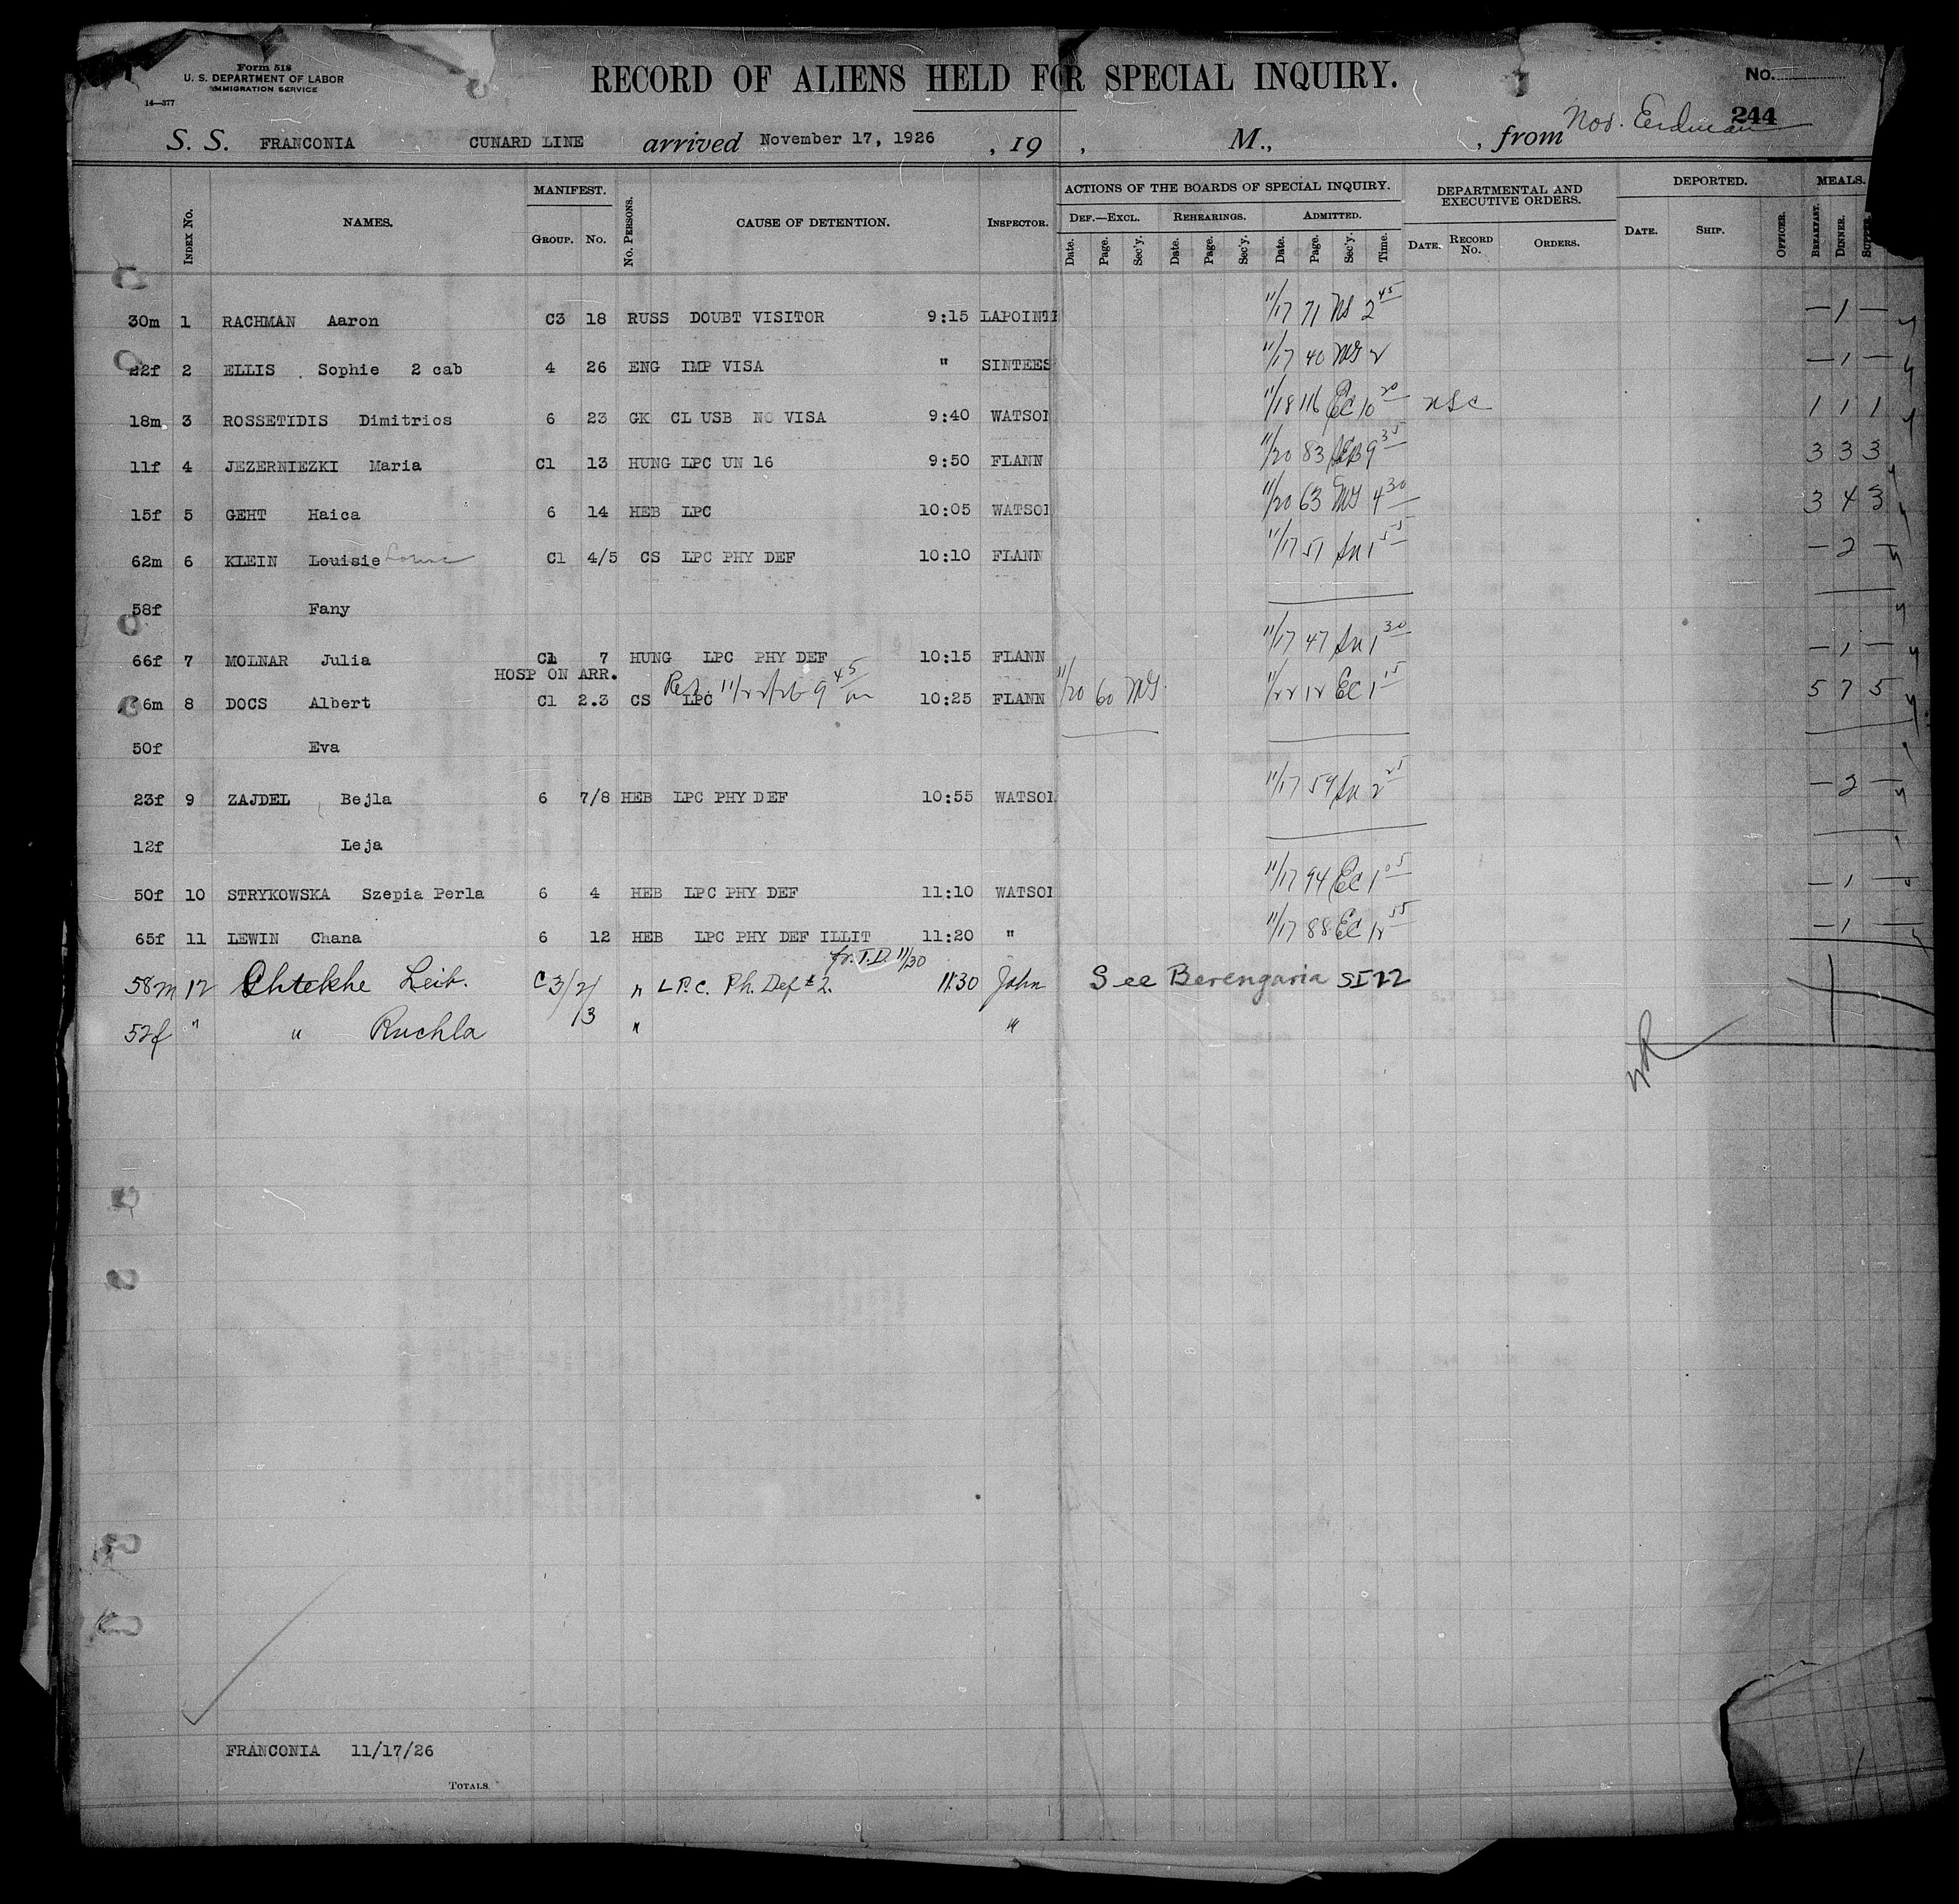 Form 518
U. S. DEPARTMENT OF LABOR
IMMIGRATION SERVICE
14—377
RECORD OF ALIENS HELD FOR SPECIAL INQUIRY.
No.
244
S. S. FRANCONIA CUNARD LINE arrived November 17, 1926 , 19 , M., , from Nov. Erdman
INDEX No. NAMES. MANIFEST. GROUP. No. No. PERSONS. CAUSE OF DETENTION. INSPECTOR. ACTIONS OF THE BOARDS OF SPECIAL INQUIRY. DEF.—EXCL. Date. Page. Sec'y. REHEARINGS. Date. Page. Sec'y. ADMITTED. Date. Page. Sec'y. Time. DEPARTMENTAL AND EXECUTIVE ORDERS. DATE. RECORD No. ORDERS. DEPORTED. DATE. SHIP. OFFICER. MEALS. BREAKFAST. DINNER. SUPPER.
30m 1 RACHMAN Aaron C3 18 RUSS DOUBT VISITOR 9:15 LAPOINTE 11/17 71 NS 2 45 — 1 —
22f 2 ELLIS Sophie 2 cab 4 26 ENG IMP VISA " SINTEES 11/17 40 MG 2 — 1 —
18m 3 ROSSETIDIS Dimitrios 6 23 GK CL USB NO VISA 9:40 WATSON 11/18 116 EC 10 20 NSC 1 1 1
11f 4 JEZERNIEZKI Maria C1 13 HUNG LPC UN 16 9:50 FLANN 11/20 83 9 35 3 3 3
15f 5 GEHT Haica 6 14 HEB LPC 10:05 WATSON 11/20 63 MG 4 30 3 4 3
62m 6 KLEIN Louisie C1 4/5 CS LPC PHY DEF 10:10 FLANN 11/17 51 1 55 — 2 —
58f Fany
66f 7 MOLNAR Julia C1 7 HUNG LPC PHY DEF 10:15 FLANN 11/17 47 1 30 — 1 —
HOSP ON ARR. 11/22/26 9 45
6m 8 DOCS Albert C1 2.3 CS LPC 10:25 FLANN 11/20 60 MG 11/22 12 EC 1 15 5 7 5
50f Eva
23f 9 ZAJDEL Bejla 6 7/8 HEB LPC PHY DEF 10:55 WATSON 11/17 59 2 25 — 2 —
12f Leja
50f 10 STRYKOWSKA Szepia Perla 6 4 HEB LPC PHY DEF 11:10 WATSON 11/17 94 EC 1 05 — 1 —
65f 11 LEWIN Chana 6 12 HEB LPC PHY DEF ILLIT 11:20 " 11/17 88 EC 12 55 — 1 —
fr. T.D. 11/30
58m 12 Chtekhe Leib. C3/2/ " L P.C. Ph. Def #2. 11:30 John See Berengaria SI 22
52f " " Ruchla 13 " "
FRANCONIA 11/17/26
TOTALS